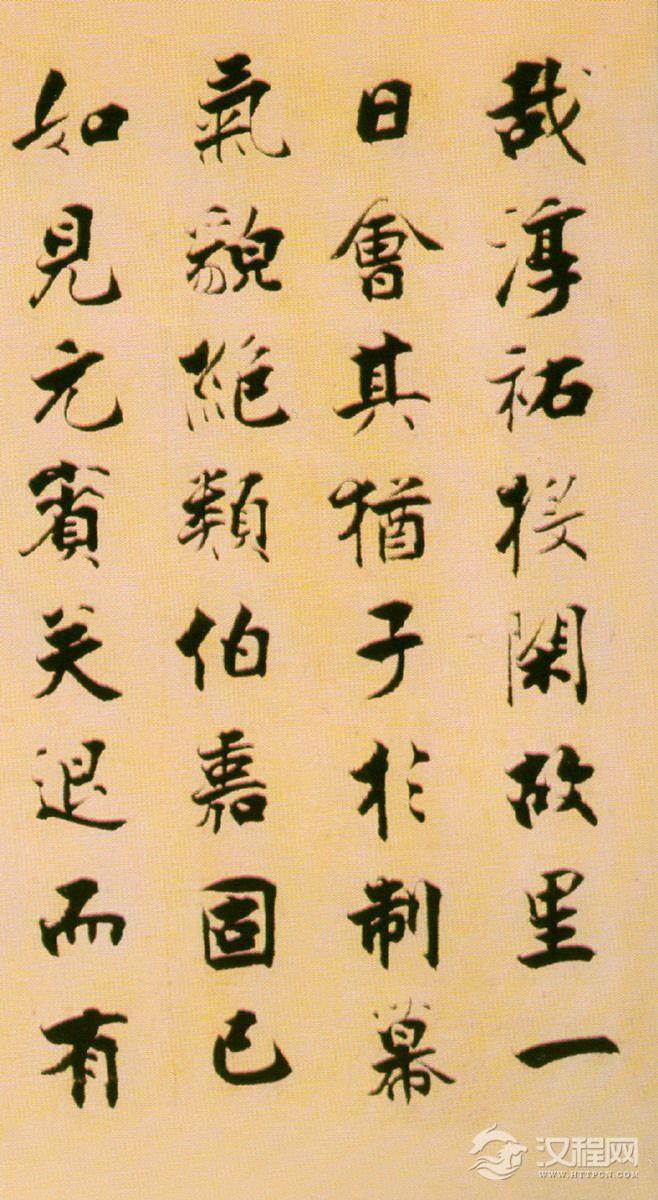 哉淳祐投閑故里一
日會其猶子於制幕
氣貌絶類伯嘉固已
如見元賓矣退而有
汉程网
WWW.HTTPCN.COM